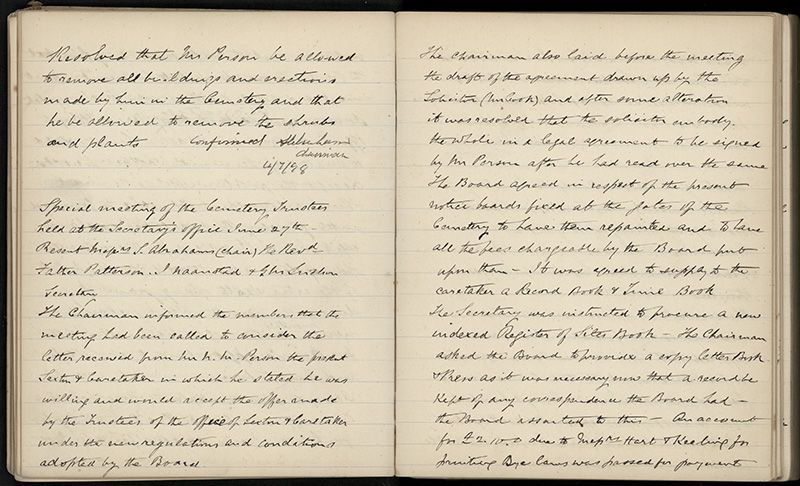 Resolved that Mr Person be allowed
to remove all buildings and erections
made by him in the Cemetery and that
he be allowed to remove the shrubs
and plants Confirmed
Chairman
4/7/98
Special meeting of the Cemetery Trustees
held at the Secretary's office June 27th
Present Messrs S. Abrahams (chair) The Revd
Father Patterson. J Naamsted & Geo Sisson
Secretary
The Chairman informed the members that the
meeting had been called to consider the
letter received from Mr Person the present
Sexton & Caretaker in which he stated he was
willing and would accept the offer made
by the Trustees of the office of Sexton & Caretaker
under the new regulations and conditions
adopted by the Board
The Chairman also laid before the meeting
the draft of the agreement drawn up by the
Solicitor (Mr Cook) and after some alteration
it was resolved that the solicitor embody
the whole in a legal agreement to be signed
by Mr Person after he had read over the same
The Board agreed in respect of the present
notice boards fixed at the gates of the
Cemetery to have them repainted and to have
all the fees chargeable by the Board put
upon them – It was agreed to supply to the
caretaker a Record Book & Time Book
The Secretary was instructed to procure a new
indexed Register of Sites Book – The Chairman
asked the Board to provide a copy letter Book
& Press as it was necessary now that a record be
kept of any correspondence the Board had –
the Board assented to this – An account
for £2.10.0 due to Messrs Hart & Keeling for
printing Bye Laws was passed for payment